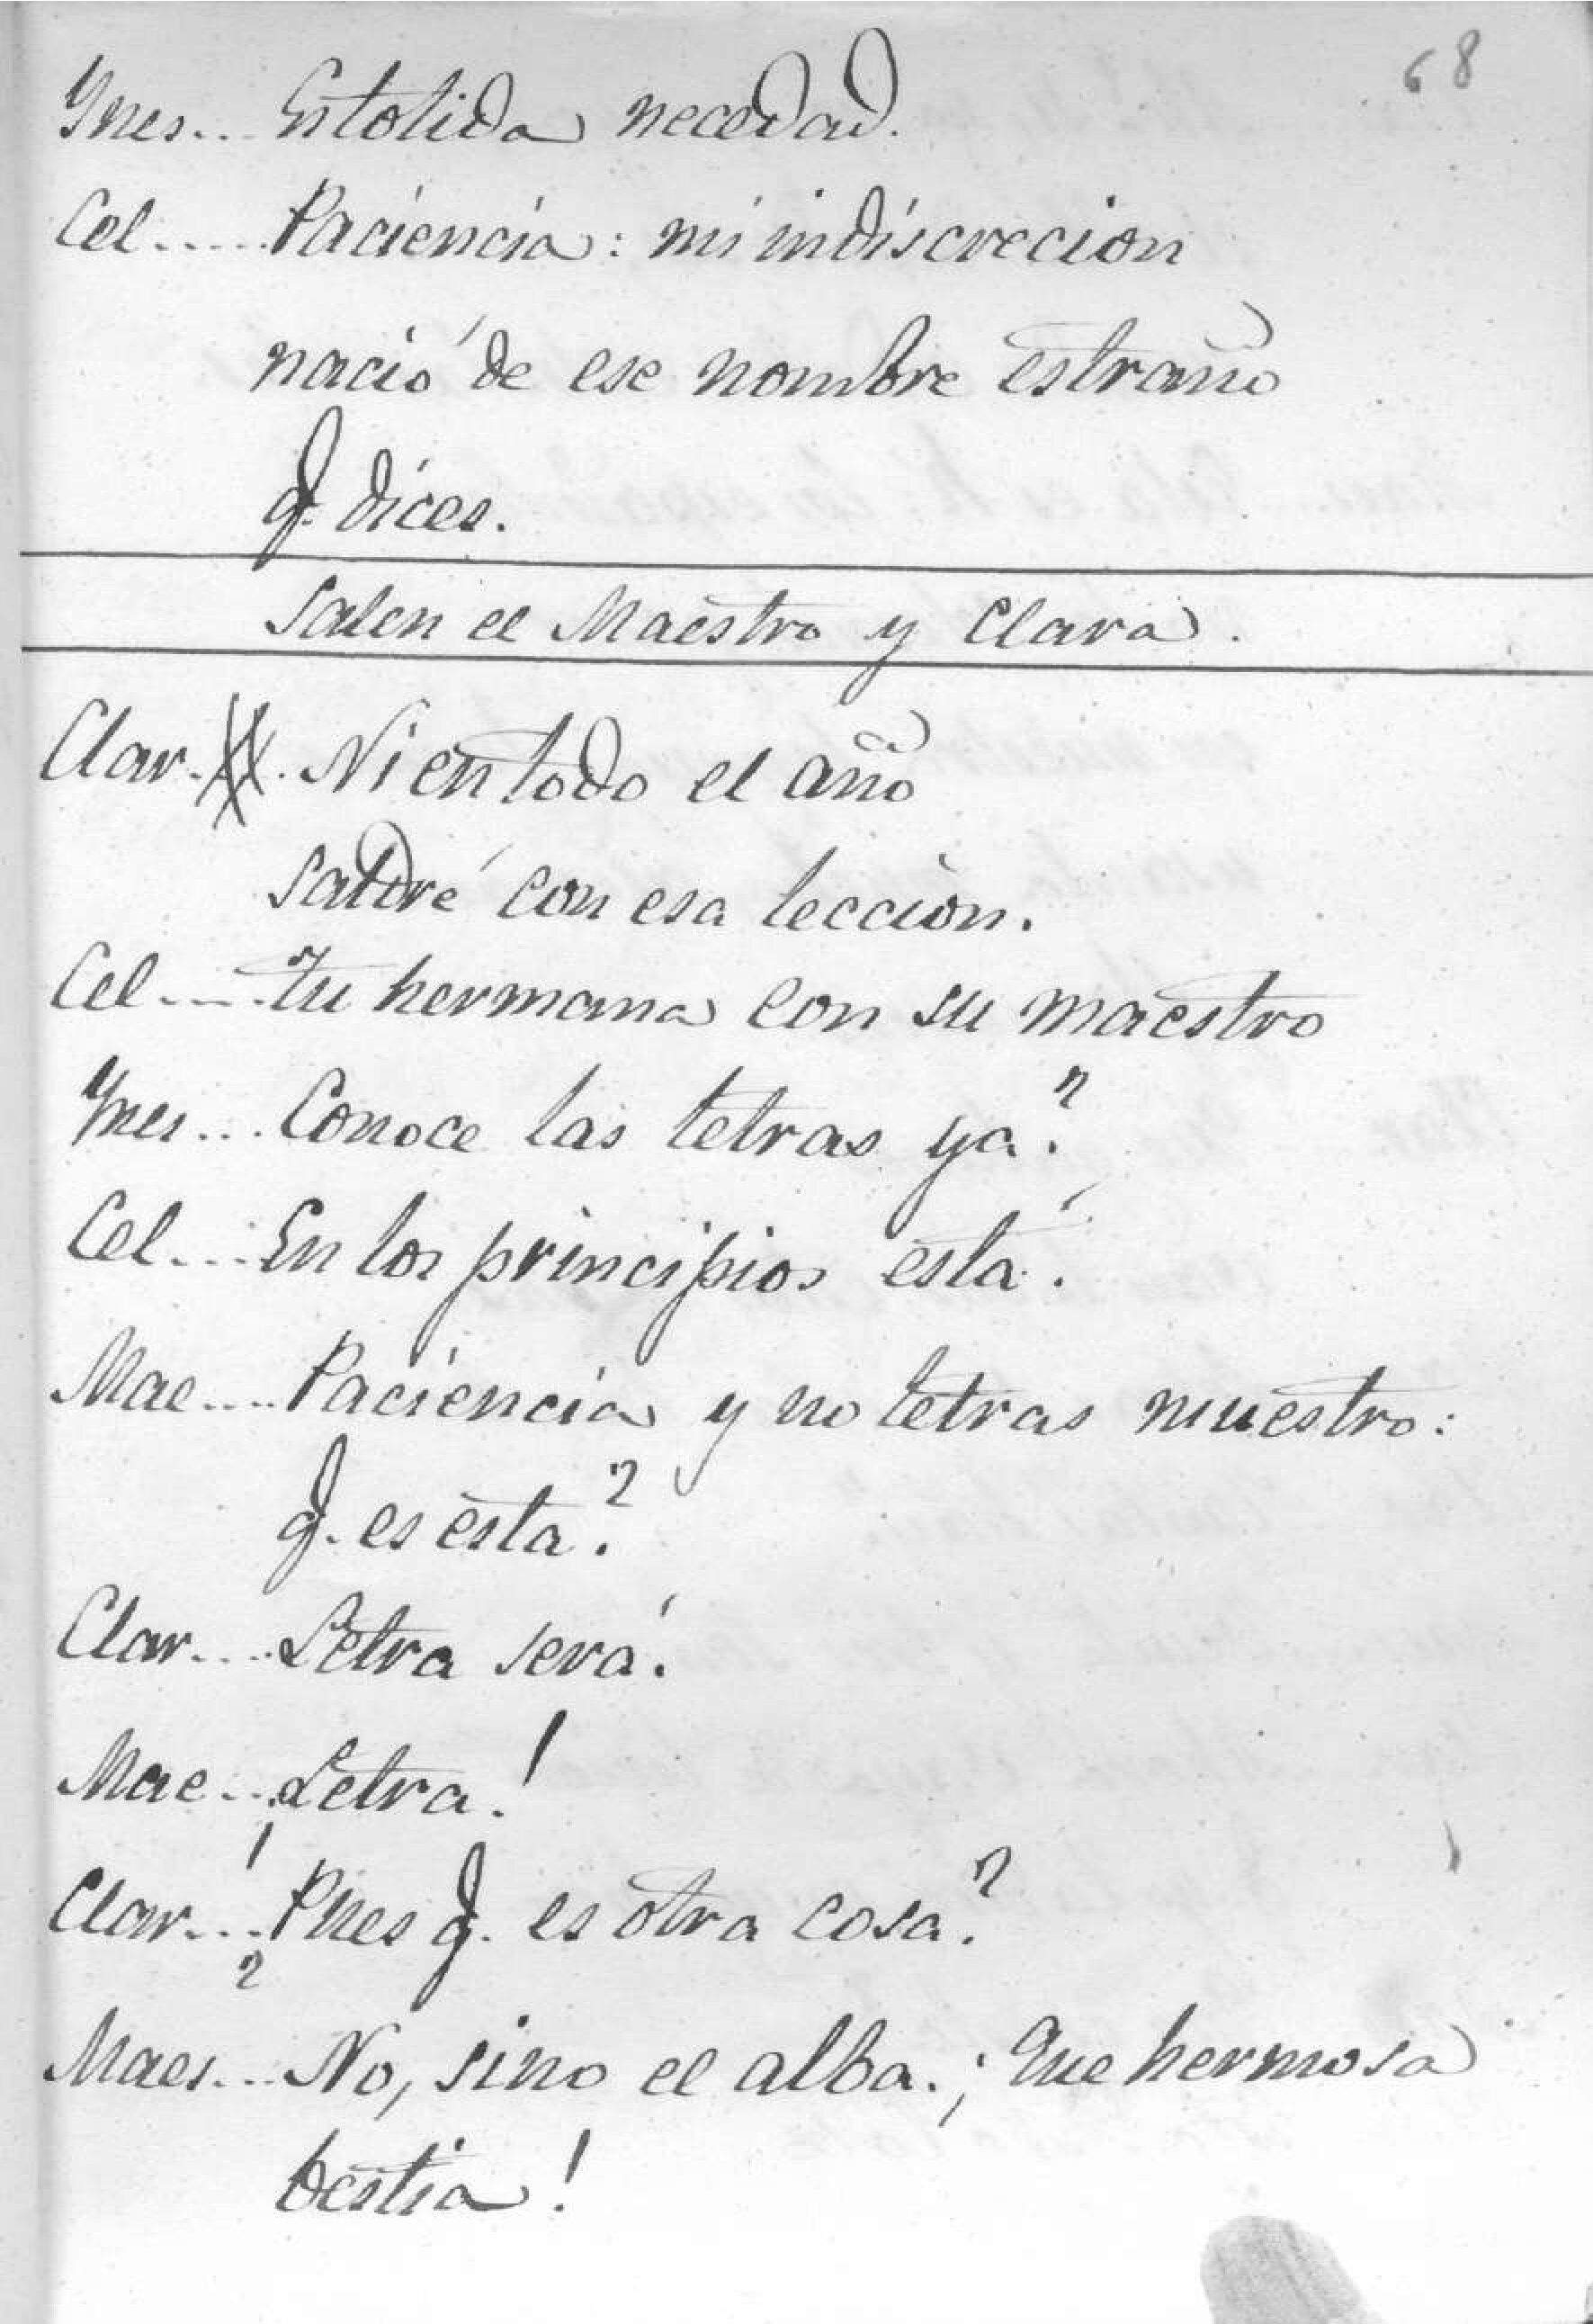 68
Ynes... Estolida necedad.
Cel..... Paciencia: mi indiscrecion
nació de ese nombre estraño
q. dices.
Salen el Maestro y Clara.
Clar... Ni en todo el año
saldré con esa leccion.
Cel.... tu hermana con su maestro
Ynes... Conoce las letras ya?
Cel.... En los principios está.
Mae.... Paciencia y no letras muestro:
q. es esta?
Clar.... Letra será.
Mae... Letra!
Clar... Pues q. es otra cosa?
Maes... No, sino el alba. ¡Que hermosa
bestia!